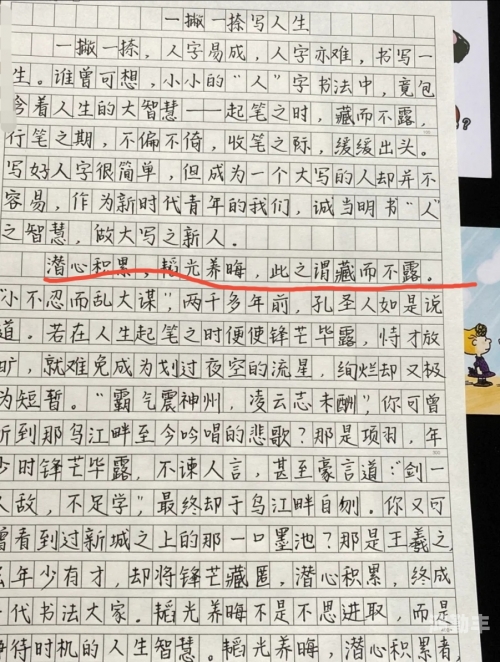 一撇一捺写人生
一撇一捺，人字易成，人字亦难，书写一
生。谁曾可想，小小的“人”字书法中，竟包
含着人生的大智慧——起笔之时，藏而不露，
行笔之期，不偏不倚，收笔之际，缓缓出头。
写好人字很简单，但成为一个大写的人却并不
容易，作为新时代青年的我们，诚当明书“人”
之智慧，做大写之新人。
潜心积累，韬光养晦，此之谓藏而不露。
“小不忍而乱大谋”，两千多年前，孔圣人如是说
道。若在人生起笔之时便使锋芒毕露，恃才放
旷，就难免成为划过夜空的流星，绚烂却又极
为短暂。“霸气震神州，凌云志未酬”，你可曾
听到那乌江畔至今吟唱的悲歌？那是项羽，年
少时锋芒毕露，不谏人言，甚至豪言道：“剑一
人敌，不足学”，最终却于乌江畔自刎。你又可
曾看到过新城之上的那一口墨池？那是王羲之，
年少有才，却将锋芒藏匿，潜心积累，终成
一代书法大家。韬光养晦不是不思进取，而是
待时机的人生智慧。韬光养晦，潜心积累者，
?